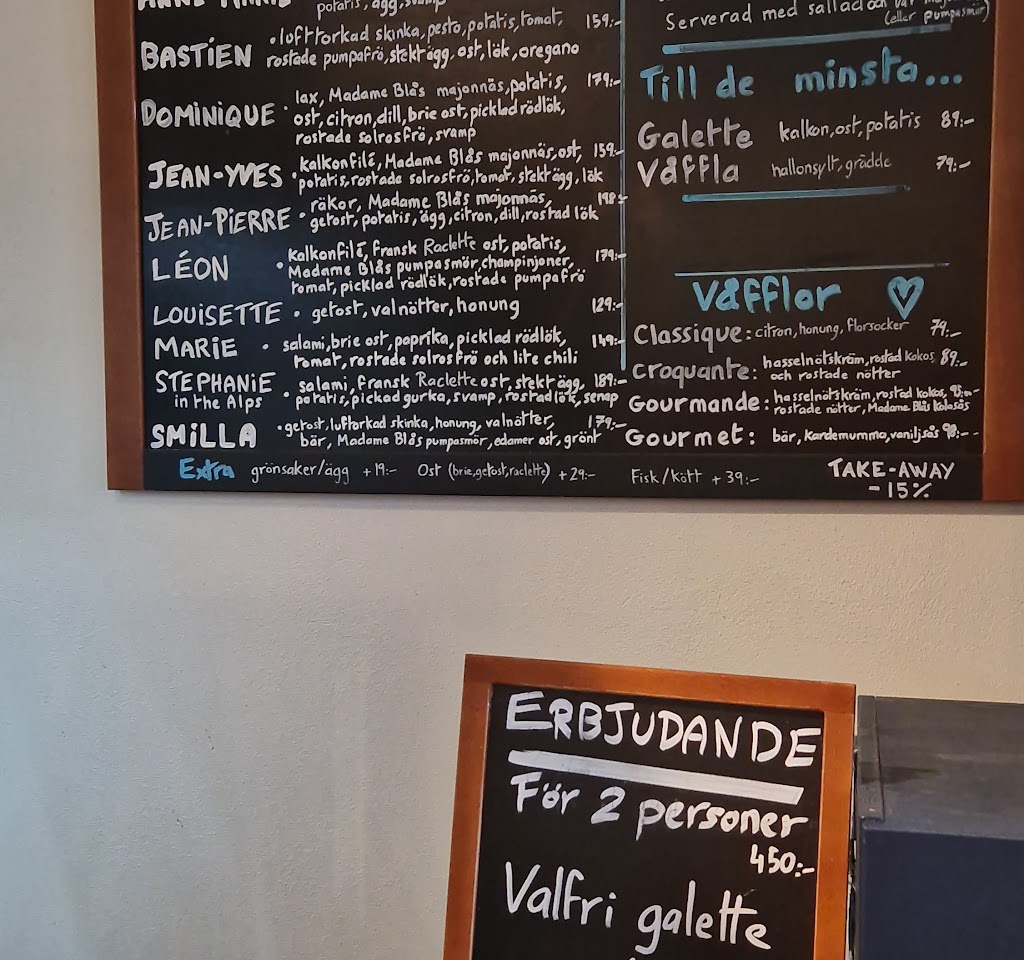 ANNE-MARIE
potatis, ägg, svamp
BASTIEN • lufttorkad skinka, pesto, potatis, tomat, 159:-
rostade pumpafrö, stekt ägg, ost, lök, oregano
DOMINIQUE • lax, Madame Blås majonnäs, potatis, 179:-
ost, citron, dill, brie ost, picklad rödlök,
rostade solrosfrö, svamp
JEAN-YVES • kalkonfilé, Madame Blås majonnäs, ost, 159:-
potatis, rostade solrosfrö, tomat, stekt ägg, lök
JEAN-PIERRE • räkor, Madame Blås majonnäs, 198:-
getost, potatis, ägg, citron, dill, rostad lök
LÉON • kalkonfilé, fransk Raclette ost, potatis, 179:-
Madame Blås pumpasmör, champinjoner,
tomat, picklad rödlök, rostade pumpafrö
LOUISETTE • getost, valnötter, honung 129:-
MARIE • salami, brie ost, paprika, picklad rödlök, 149:-
tomat, rostade solrosfrö och lite chili
STEPHANIE • salami, fransk Raclette ost, stekt ägg, 189:-
in the Alps potatis, pickad gurka, svamp, rostad lök, senap
SMILLA • getost, luftorkad skinka, honung, valnötter, 179:-
bär, Madame Blås pumpasmör, edamer ost, grönt
Serverad med sallad och
(eller pumpasmör)
Till de minsta...
Galette kalkon, ost, potatis 89:-
Våffla hallonsylt, grädde 79:-
Våfflor
Classique: citron, honung, florsocker 79:-
Croquante: hasselnötskräm, rostad kokos 89:-
och rostade nötter
Gourmande: hasselnötskräm, rostad kokos, 95:-
rostade nötter, Madame Blås kolasås
Gourmet: bär, kardemumma, vaniljsås 98:-
Extra grönsaker/ägg +19:- Ost (brie, getost, raclette) +29:- Fisk/kött +39:- TAKE-AWAY
-15%
ERBJUDANDE
För 2 personer
450:-
Valfri galette